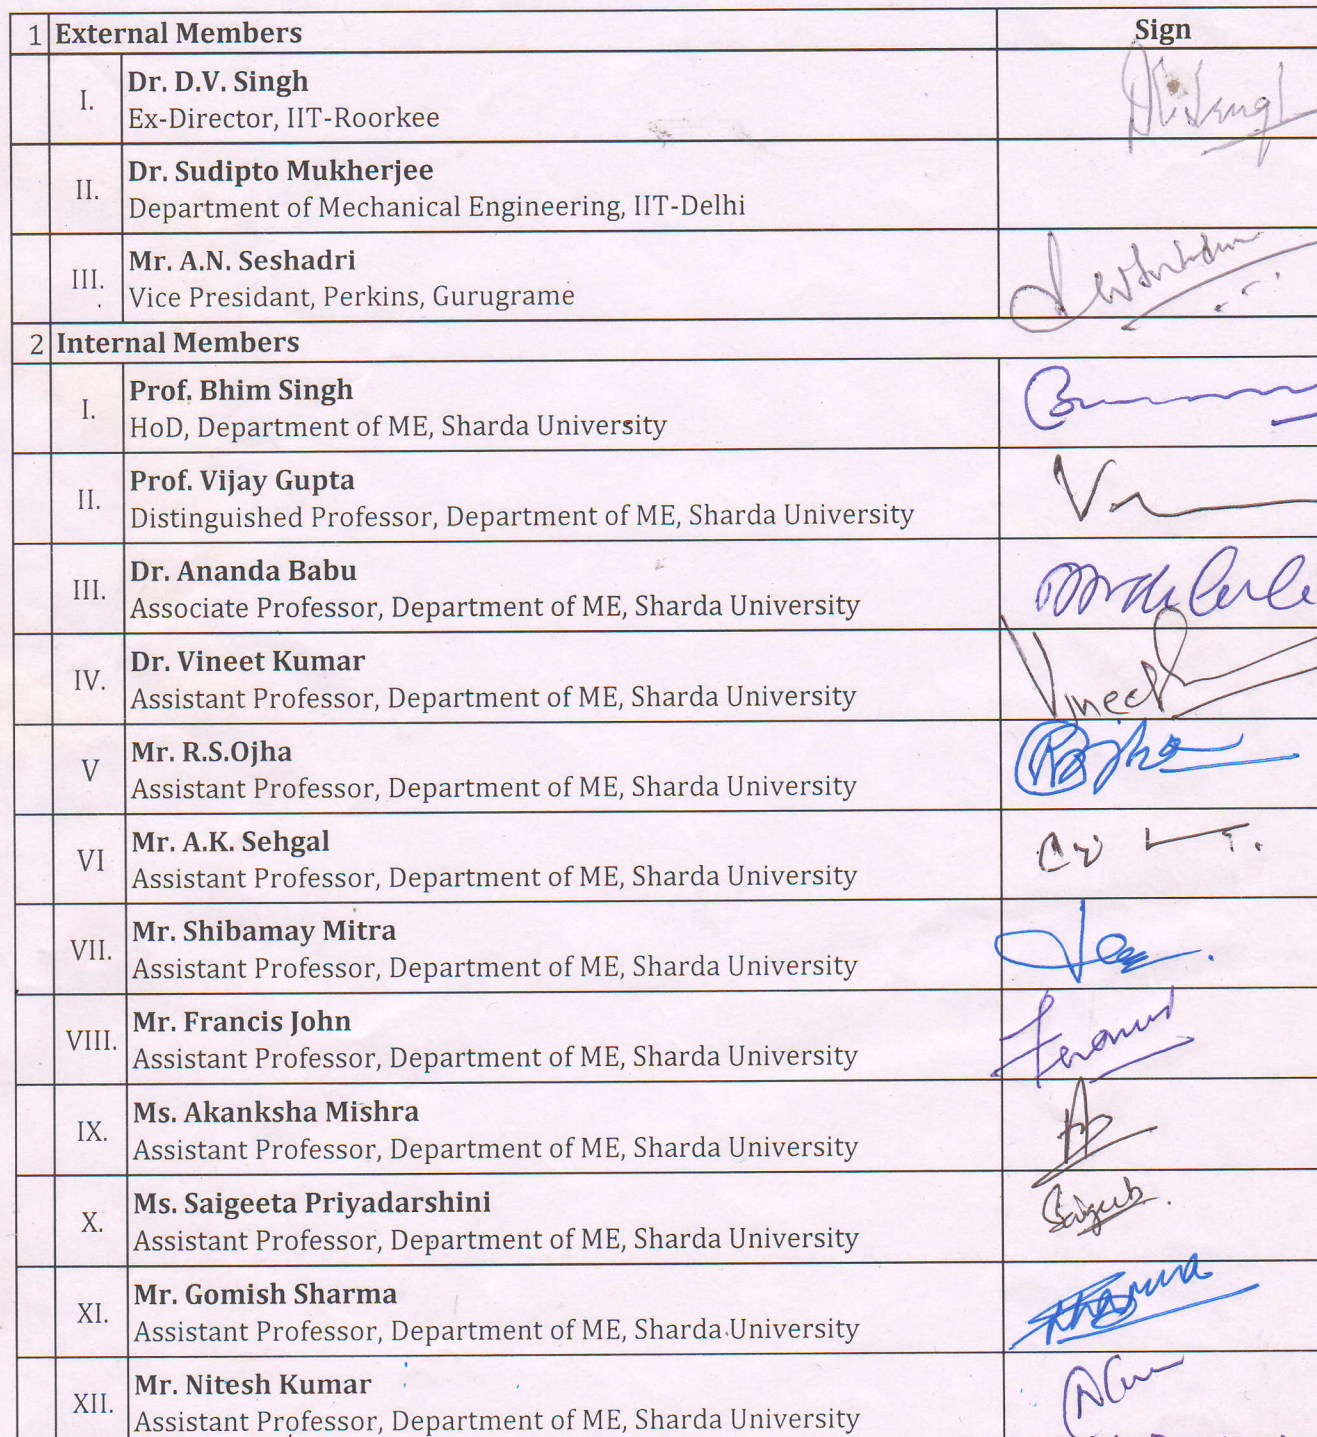 1 External Members Sign
I. Dr. D.V. Singh
Ex-Director, IIT-Roorkee
II. Dr. Sudipto Mukherjee
Department of Mechanical Engineering, IIT-Delhi
III. Mr. A.N. Seshadri
Vice Presidant, Perkins, Gurugrame
2 Internal Members
I. Prof. Bhim Singh
HoD, Department of ME, Sharda University
II. Prof. Vijay Gupta
Distinguished Professor, Department of ME, Sharda University
III. Dr. Ananda Babu
Associate Professor, Department of ME, Sharda University
IV. Dr. Vineet Kumar
Assistant Professor, Department of ME, Sharda University
V Mr. R.S.Ojha
Assistant Professor, Department of ME, Sharda University
VI Mr. A.K. Sehgal
Assistant Professor, Department of ME, Sharda University
VII. Mr. Shibamay Mitra
Assistant Professor, Department of ME, Sharda University
VIII. Mr. Francis John
Assistant Professor, Department of ME, Sharda University
IX. Ms. Akanksha Mishra
Assistant Professor, Department of ME, Sharda University
X. Ms. Saigeeta Priyadarshini
Assistant Professor, Department of ME, Sharda University
XI. Mr. Gomish Sharma
Assistant Professor, Department of ME, Sharda University
XII. Mr. Nitesh Kumar
Assistant Professor, Department of ME, Sharda University